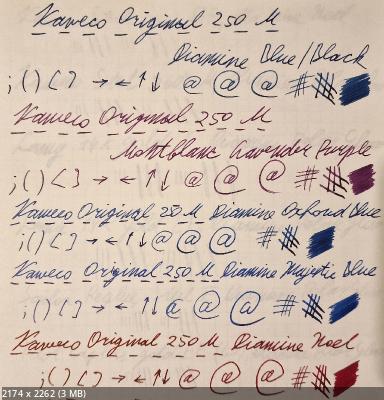 Kaweco Original 250 M
Diamine Blue/Black
; ( ) < ] → ← ↑ ↓ @ @ @ # #
Kaweco Original 250 M
Montblanc Lavender Purple
; ( ) < ] → ← ↑ ↓ @ @ @ # #
Kaweco Original 250 M Diamine Oxford Blue
; ( ) < ] → ← ↑ ↓ @ @ @ # #
Kaweco Original 250 M Diamine Majestic Blue
; ( ) < ] → ← ↑ ↓ @ @ @ # #
Kaweco Original 250 M Diamine Noel
; ( ) < ] → ← ↑ ↓ @ @ @ # #
2174 x 2262 (3 MB)